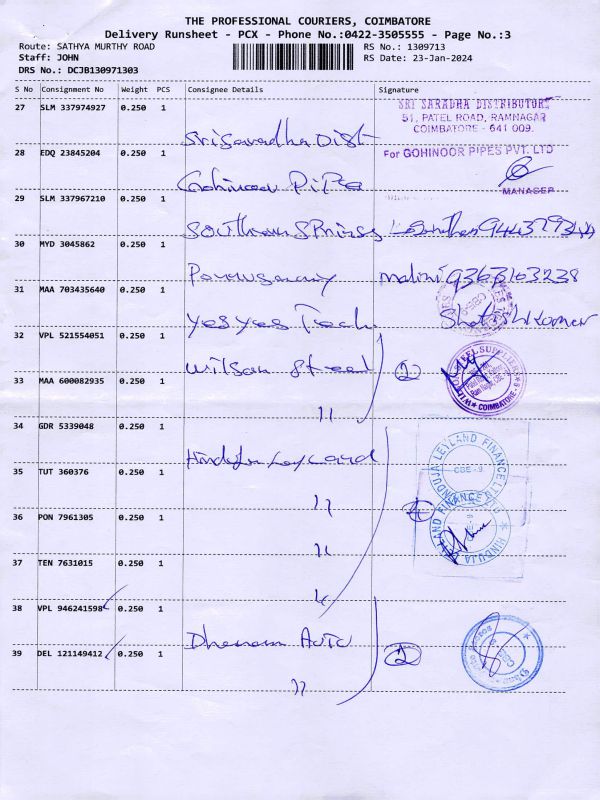 THE PROFESSIONAL COURIERS, COIMBATORE
Delivery Runsheet - PCX - Phone No.:0422-3505555 - Page No.:3
Route: SATHYA MURTHY ROAD RS No.: 1309713
Staff: JOHN RS Date: 23-Jan-2024
DRS No.: DCJB130971303
S No Consignment No Weight PCS Consignee Details Signature
27 SLM 337974927 0.250 1 Sri Saradha Dist
SRI SARADHA DISTRIBUTORS
51, PATEL ROAD, RAMNAGAR
COIMBATORE - 641 009.
28 EDQ 23845204 0.250 1 Gohinoor Pipe
For GOHINOOR PIPES PVT. LTD
MANAGER
29 SLM 337967210 0.250 1 Southern Springs
30 MYD 3045862 0.250 1 malini 9363163238
31 MAA 703435640 0.250 1 Yes yes Tech
32 VPL 521554051 0.250 1 Wilson Steel 2
STEEL SUPPLIERS
COIMBATORE
33 MAA 600082935 0.250 1 11
34 GDR 5339048 0.250 1 Hinduja Leyland
HINDUJA LEYLAND FINANCE LTD
CBE -9
35 TUT 360376 0.250 1 11
36 PON 7961305 0.250 1 11 4
37 TEN 7631015 0.250 1
38 VPL 946241598 0.250 1 Dhanam Auto
39 DEL 121149412 0.250 1 11 2